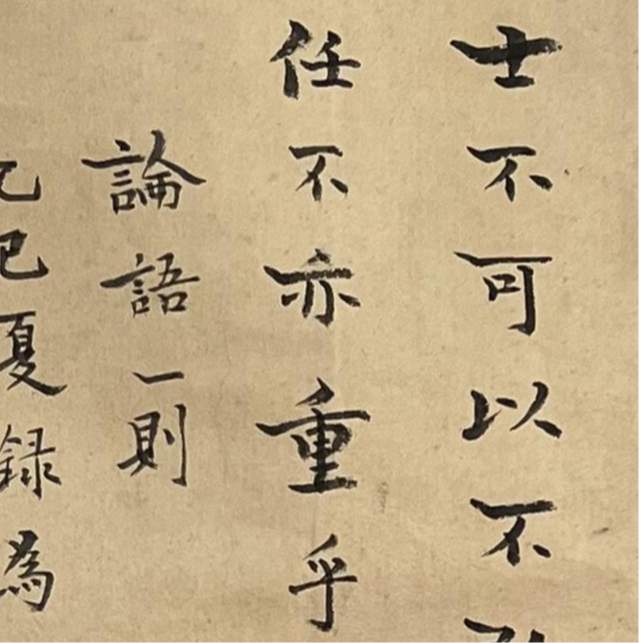 士不可以不
任不亦重乎
論語一則
己巳夏録為